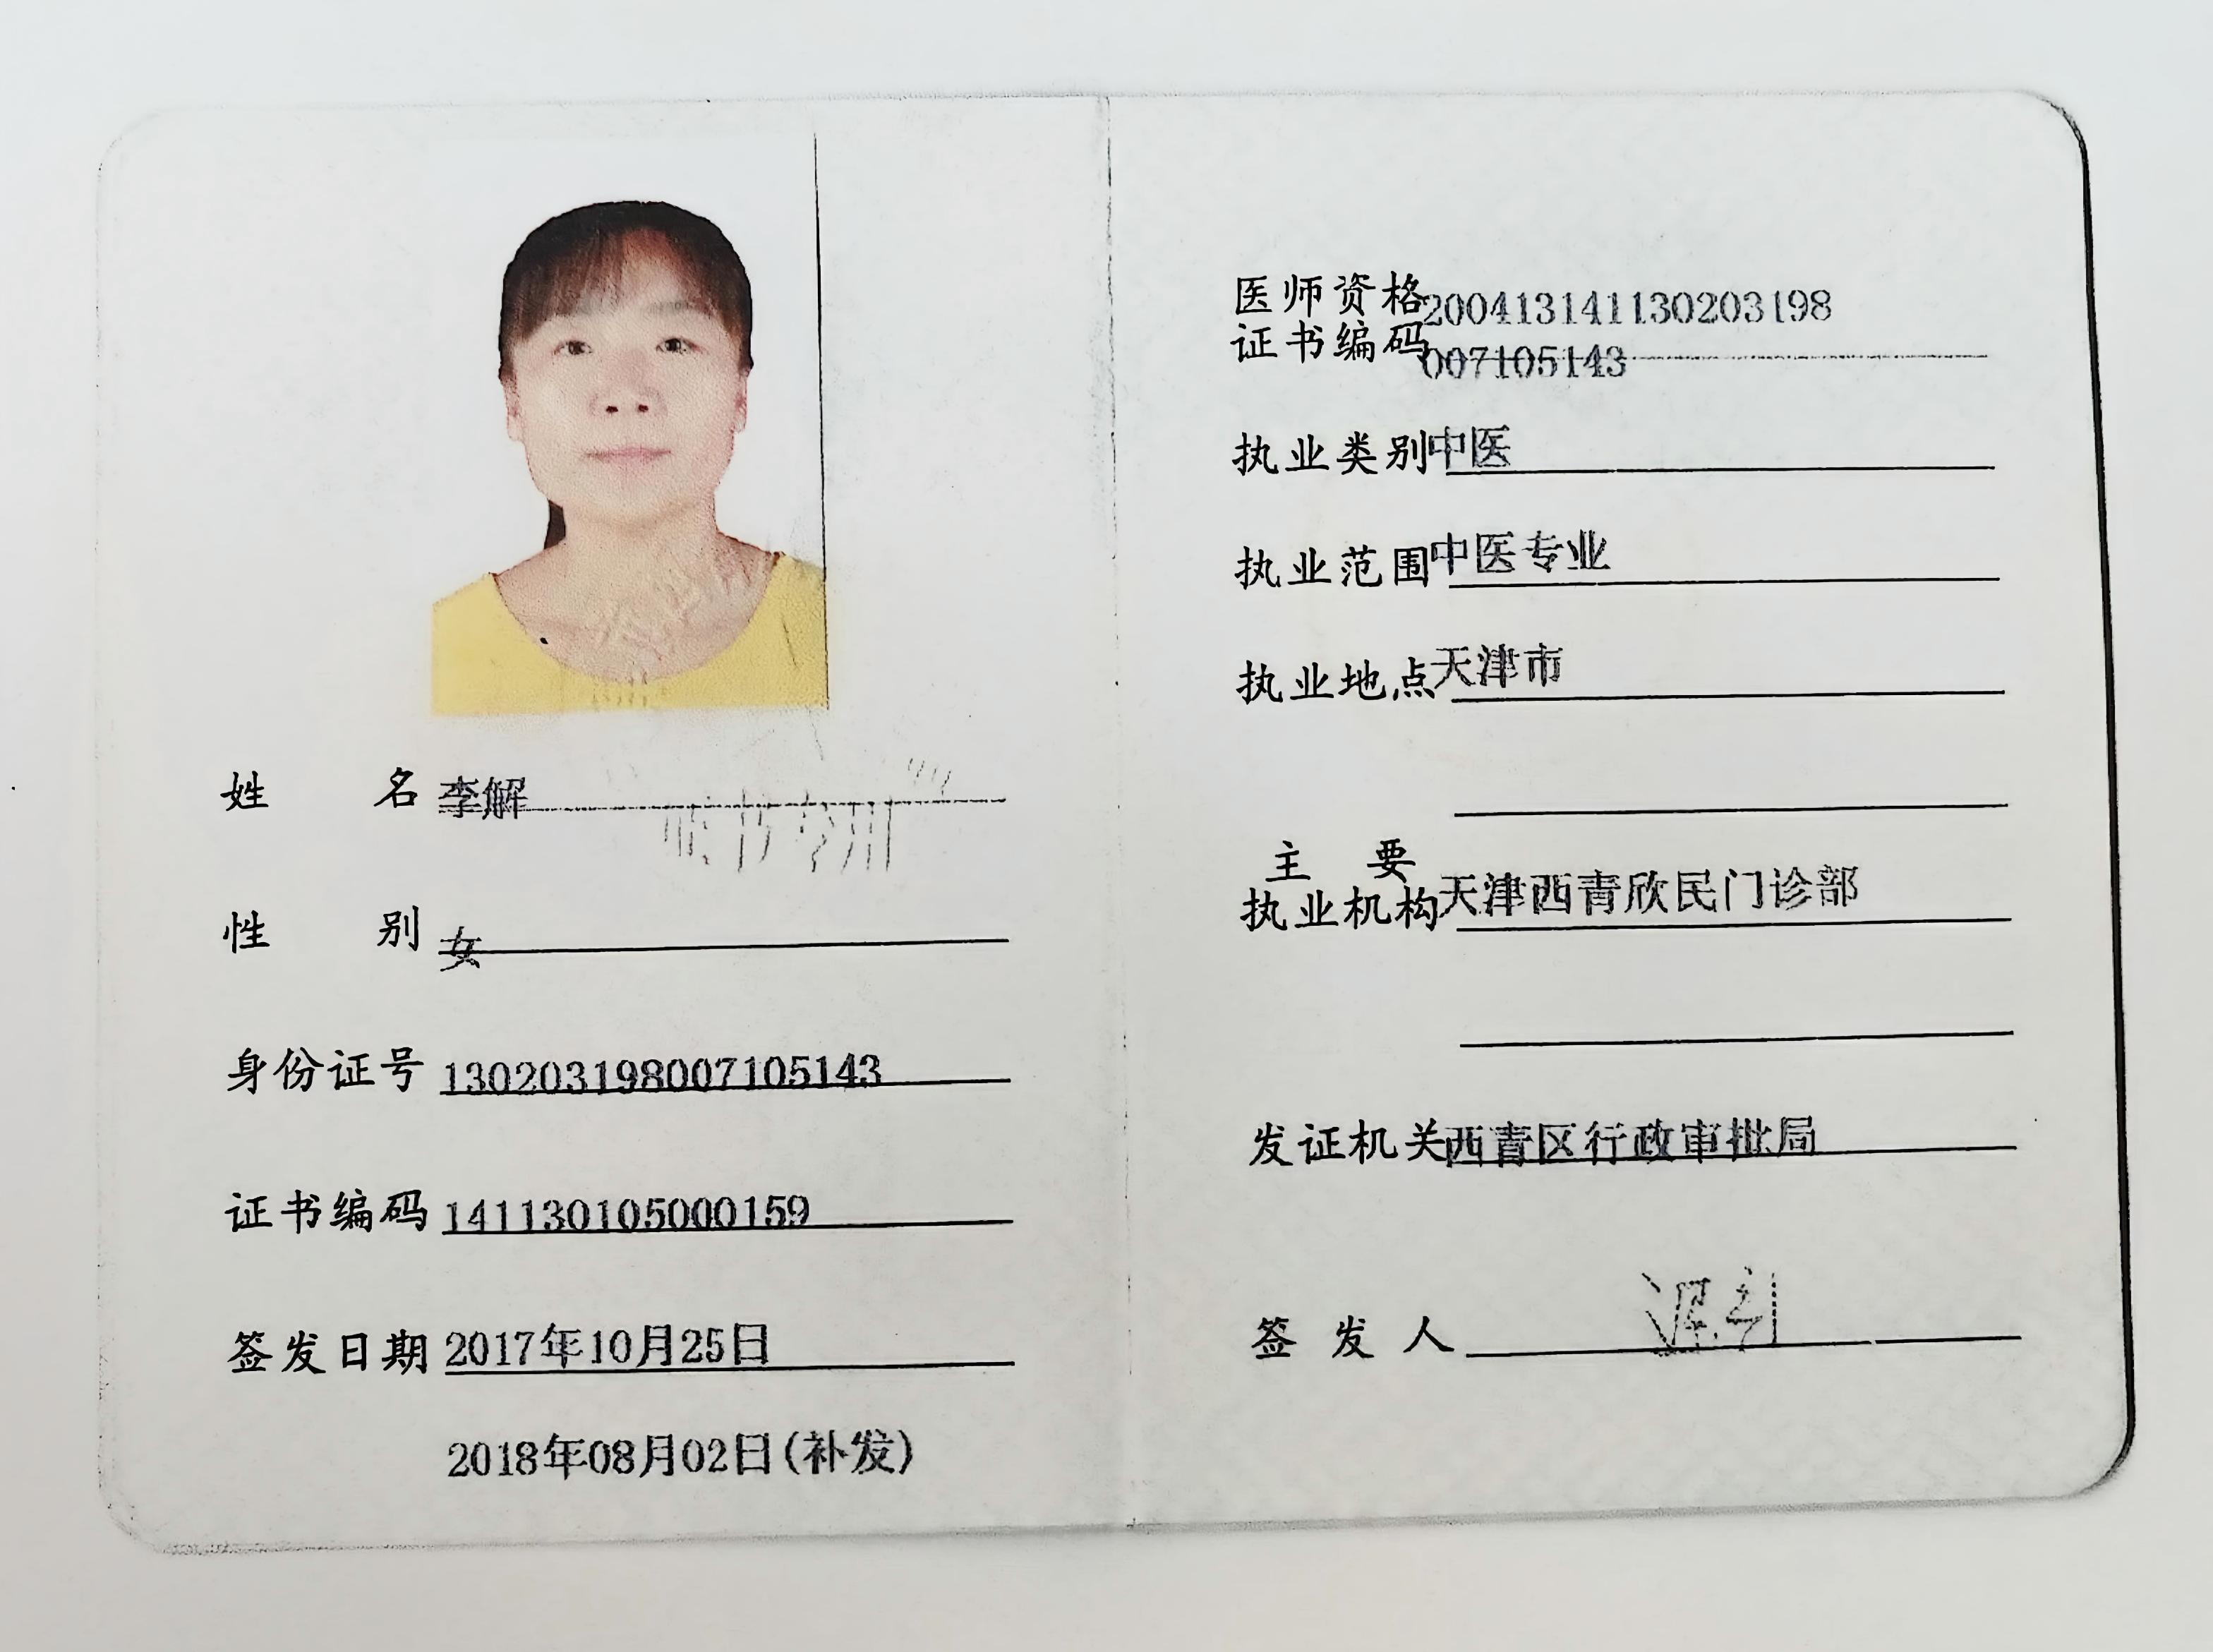 姓名 李解
性别 女
身份证号 130203198007105143
证书编码 141130105000159
签发日期 2017年10月25日
2018年08月02日(补发)
医师资格 200413141130203198
证书编码 007105143
执业类别 中医
执业范围 中医专业
执业地点 天津市
主要
执业机构 天津西青欣民门诊部
发证机关 西青区行政审批局
签发人